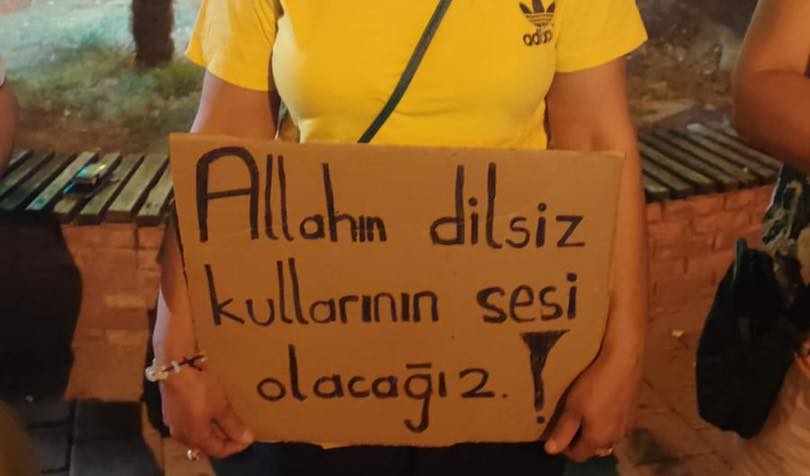 adidas
Allahın dilsiz
kullarının sesi
olacağız.!